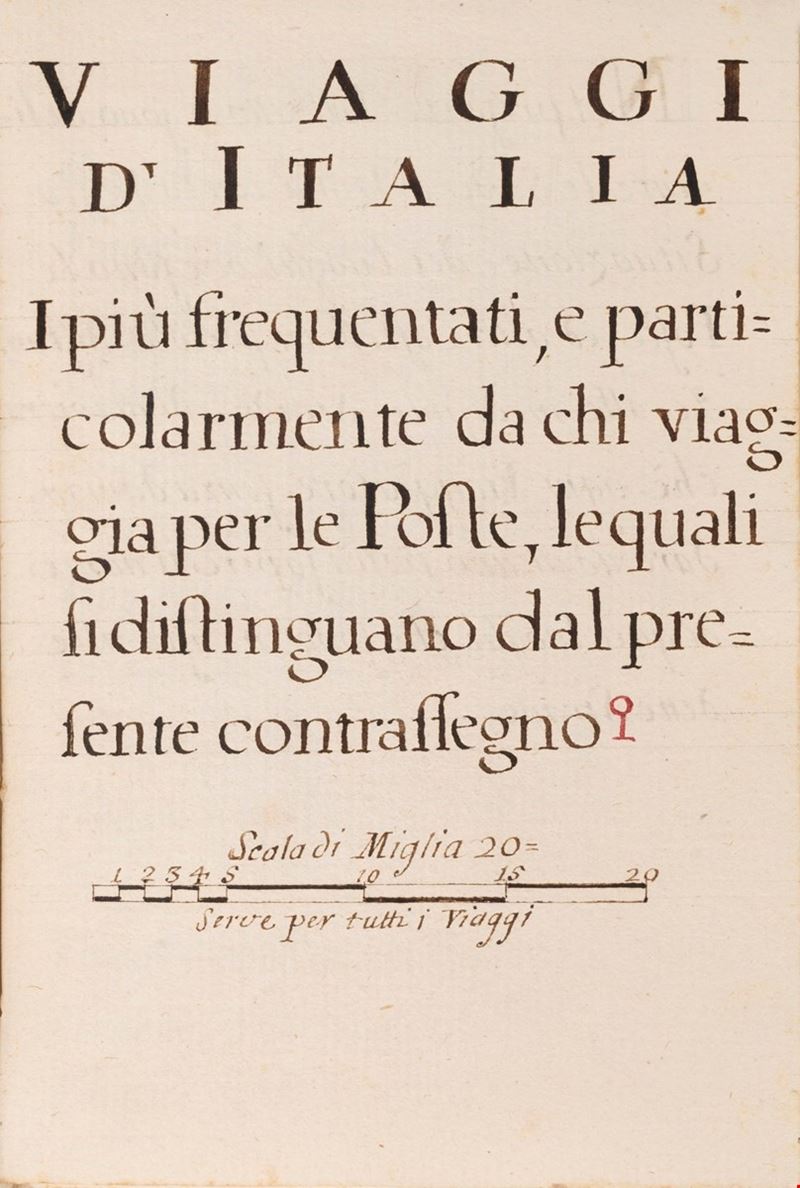 VIAGGI
D' ITALIA
I più frequentati, e parti=
colarmente da chi viag=
gia per le Poſte, le quali
ſi diſtinguano dal pre=
ſente contraſſegno
Scala di Miglia 20=
1 2 3 4 5 10 15 20
Serve per tutti i Viaggi